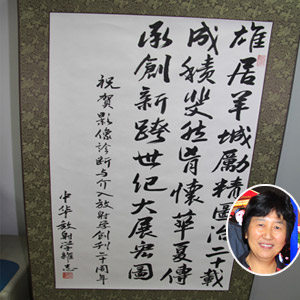 雄居羊城勵精圖治二十載
成績斐然胸懷華夏傳
承創新跨世紀大展宏圖
祝賀影像诊断与介入放射学創刊二十周年
中华放射学雜志